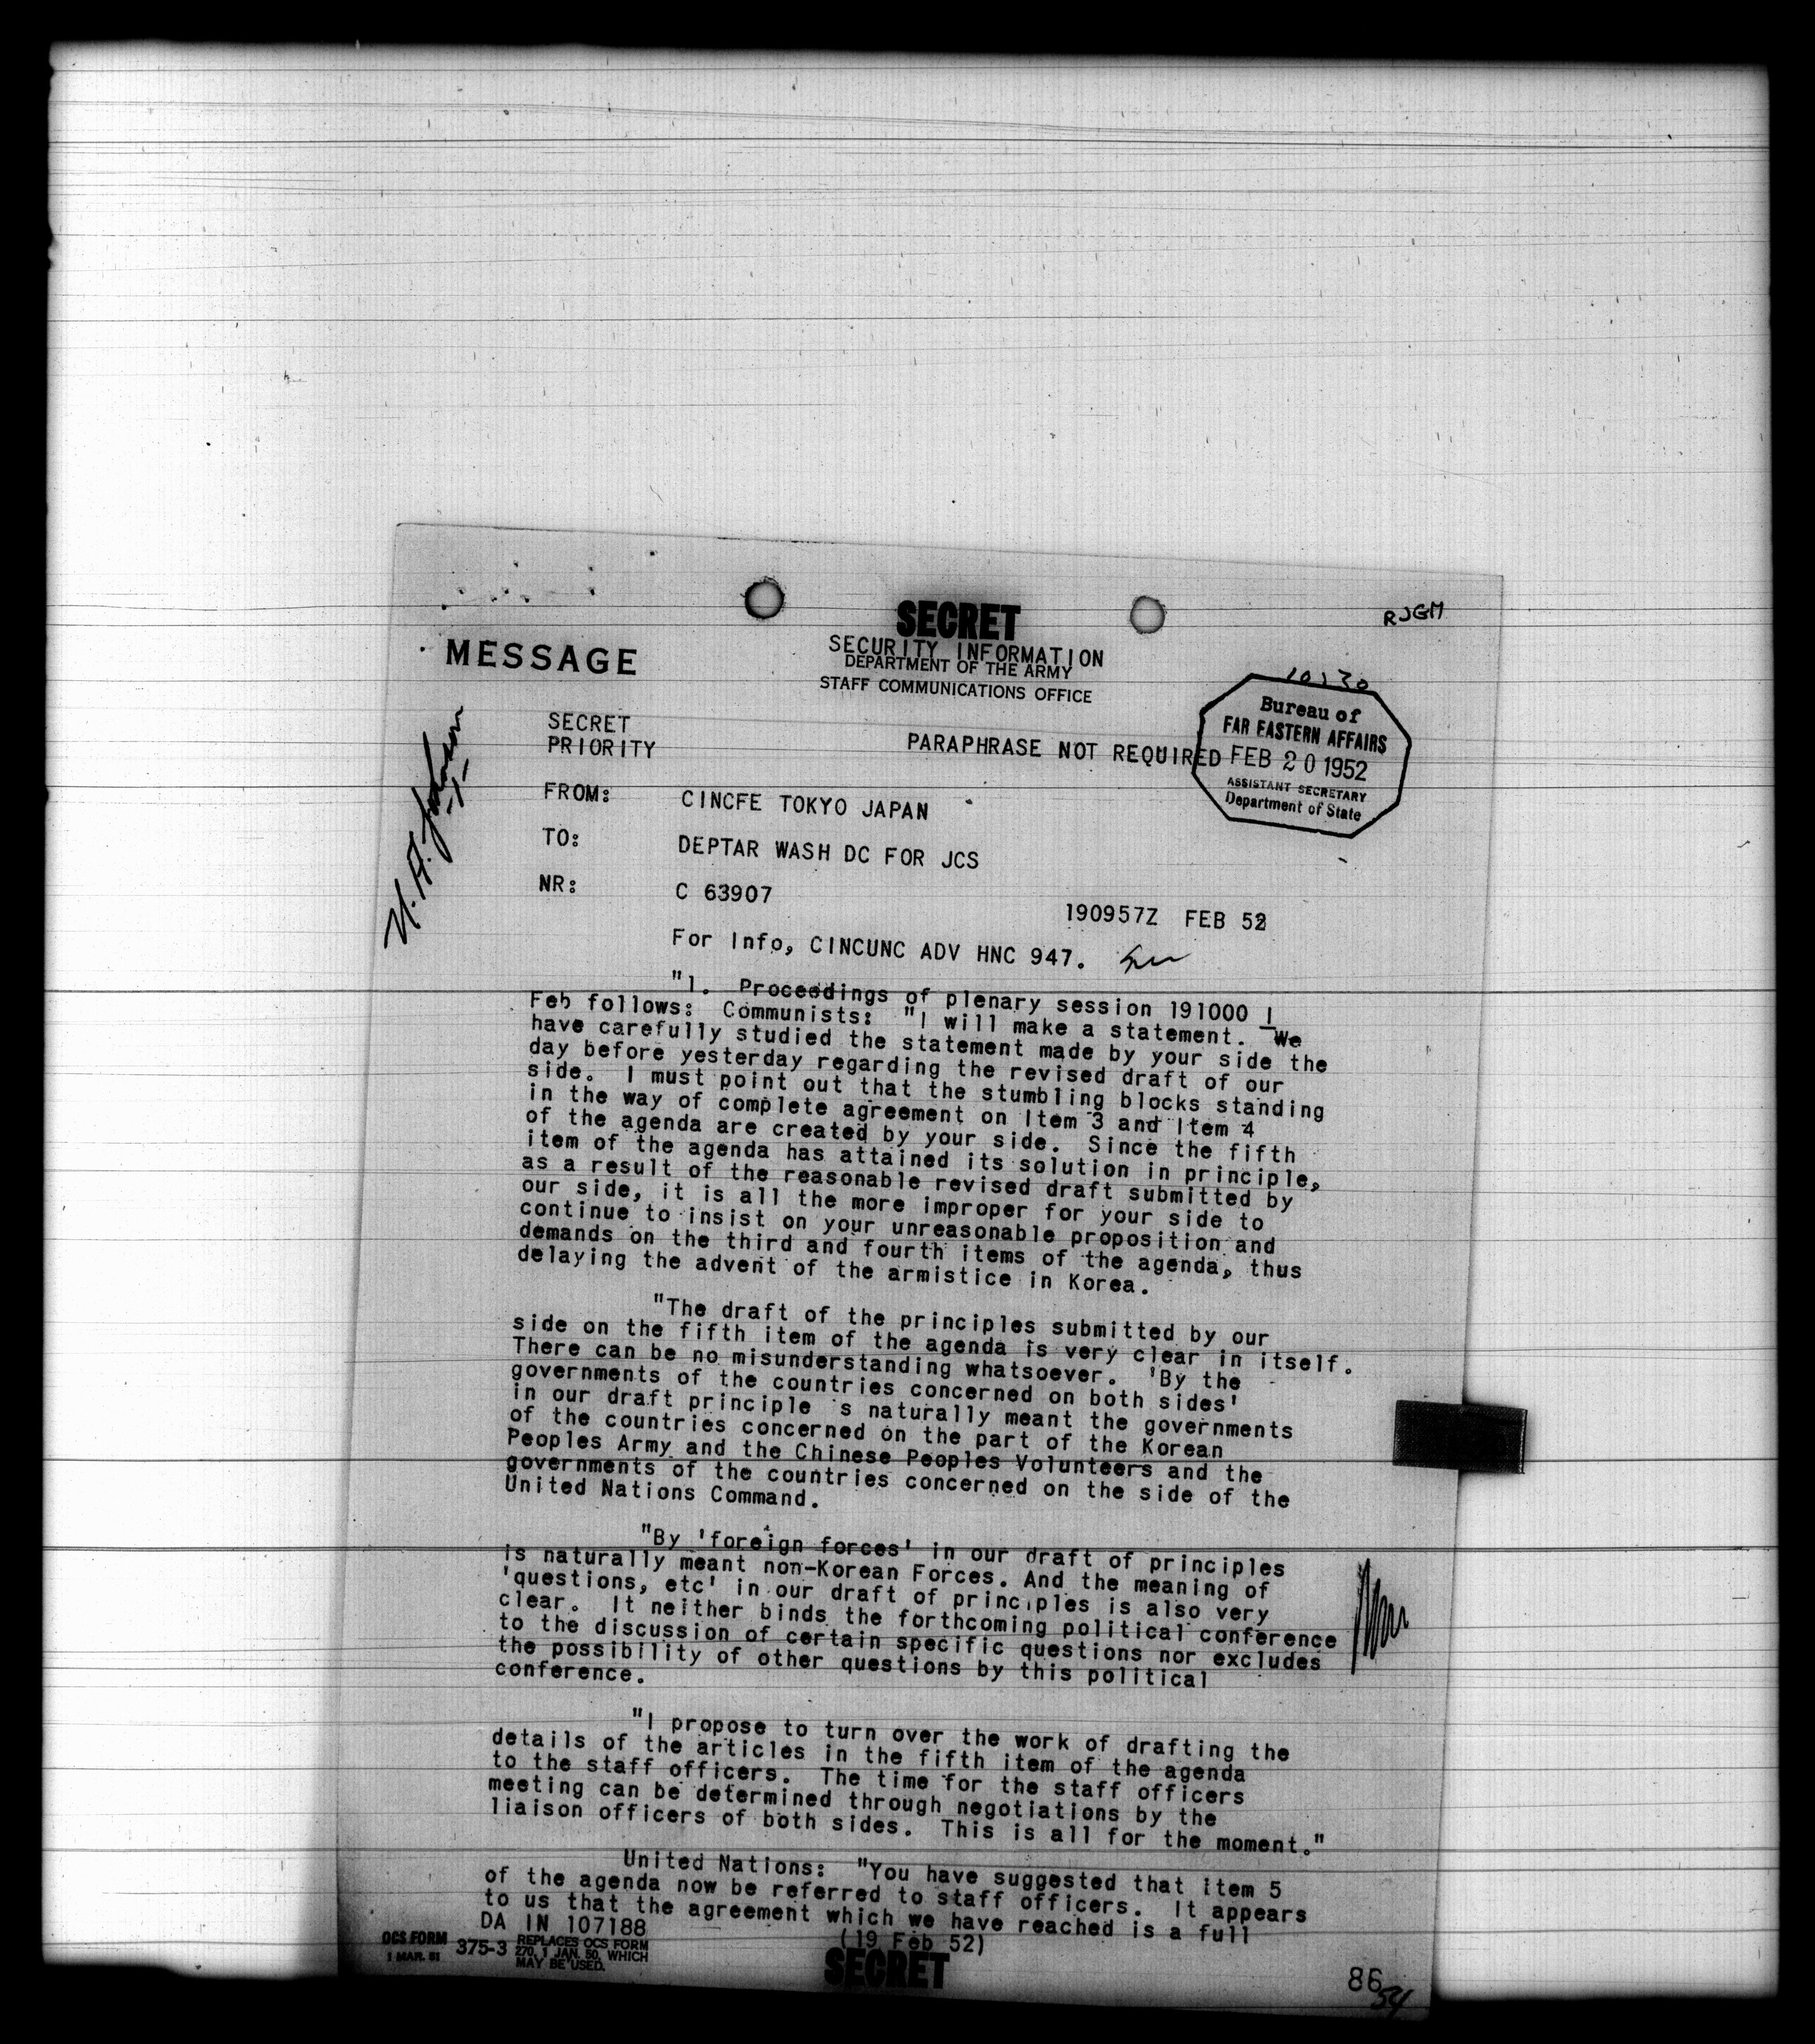 RJGM
SECRET
MESSAGE
SECURITY INFORMATION
DEPARTMENT OF THE ARMY
STAFF COMMUNICATIONS OFFICE
10130
Bureau of
FAR EASTERN AFFAIRS
FEB 20 1952
ASSISTANT SECRETARY
Department of State
SECRET
PRIORITY
PARAPHRASE NOT REQUIRED
U.A. Johnson
FROM: CINCFE TOKYO JAPAN
TO: DEPTAR WASH DC FOR JCS
NR: C 63907
190957Z FEB 52
For Info, CINCUNC ADV HNC 947.
"1. Proceedings of plenary session 191000 I
Feb follows: Communists: "I will make a statement. We
have carefully studied the statement made by your side the
day before yesterday regarding the revised draft of our
side. I must point out that the stumbling blocks standing
in the way of complete agreement on Item 3 and Item 4
of the agenda are created by your side. Since the fifth
item of the agenda has attained its solution in principle,
as a result of the reasonable revised draft submitted by
our side, it is all the more improper for your side to
continue to insist on your unreasonable proposition and
demands on the third and fourth items of the agenda, thus
delaying the advent of the armistice in Korea.
"The draft of the principles submitted by our
side on the fifth item of the agenda is very clear in itself.
There can be no misunderstanding whatsoever. 'By the
governments of the countries concerned on both sides'
in our draft principle s naturally meant the governments
of the countries concerned on the part of the Korean
Peoples Army and the Chinese Peoples Volunteers and the
governments of the countries concerned on the side of the
United Nations Command.
"By 'foreign forces' in our draft of principles
is naturally meant non-Korean Forces. And the meaning of
'questions, etc' in our draft of principles is also very
clear. It neither binds the forthcoming political conference
to the discussion of certain specific questions nor excludes
the possibility of other questions by this political
conference.
"I propose to turn over the work of drafting the
details of the articles in the fifth item of the agenda
to the staff officers. The time for the staff officers
meeting can be determined through negotiations by the
liaison officers of both sides. This is all for the moment."
United Nations: "You have suggested that item 5
of the agenda now be referred to staff officers. It appears
to us that the agreement which we have reached is a full
DA IN 107188
(19 Feb 52)
OCS FORM 375-3 REPLACES OCS FORM
1 MAR. 51 270, 1 JAN. 50, WHICH
MAY BE USED.
SECRET
86
54